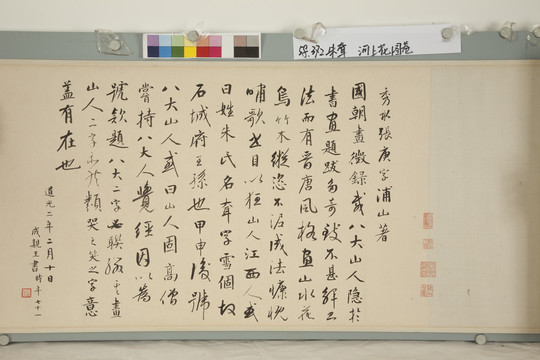 朱耷 河上花图卷
秀水張庚字浦山著
國朝畫徵錄載八大山人隱於
書畫題跋多奇致不甚解書
法而有晉唐風格畫山水花
鳥竹木縱恣不泥成法慷慨
嘯歌世目以狂山人江西人或
曰姓朱氏名耷字雪個故
石城府王孫也甲申後號
八大山人或曰山人固高僧
嘗持八大人覺經因以為
號款題八大二字必聯綴之畫
山人二字亦然類哭之笑之字意
蓋有在也
道光二年二月十日
成親王書時年七十一